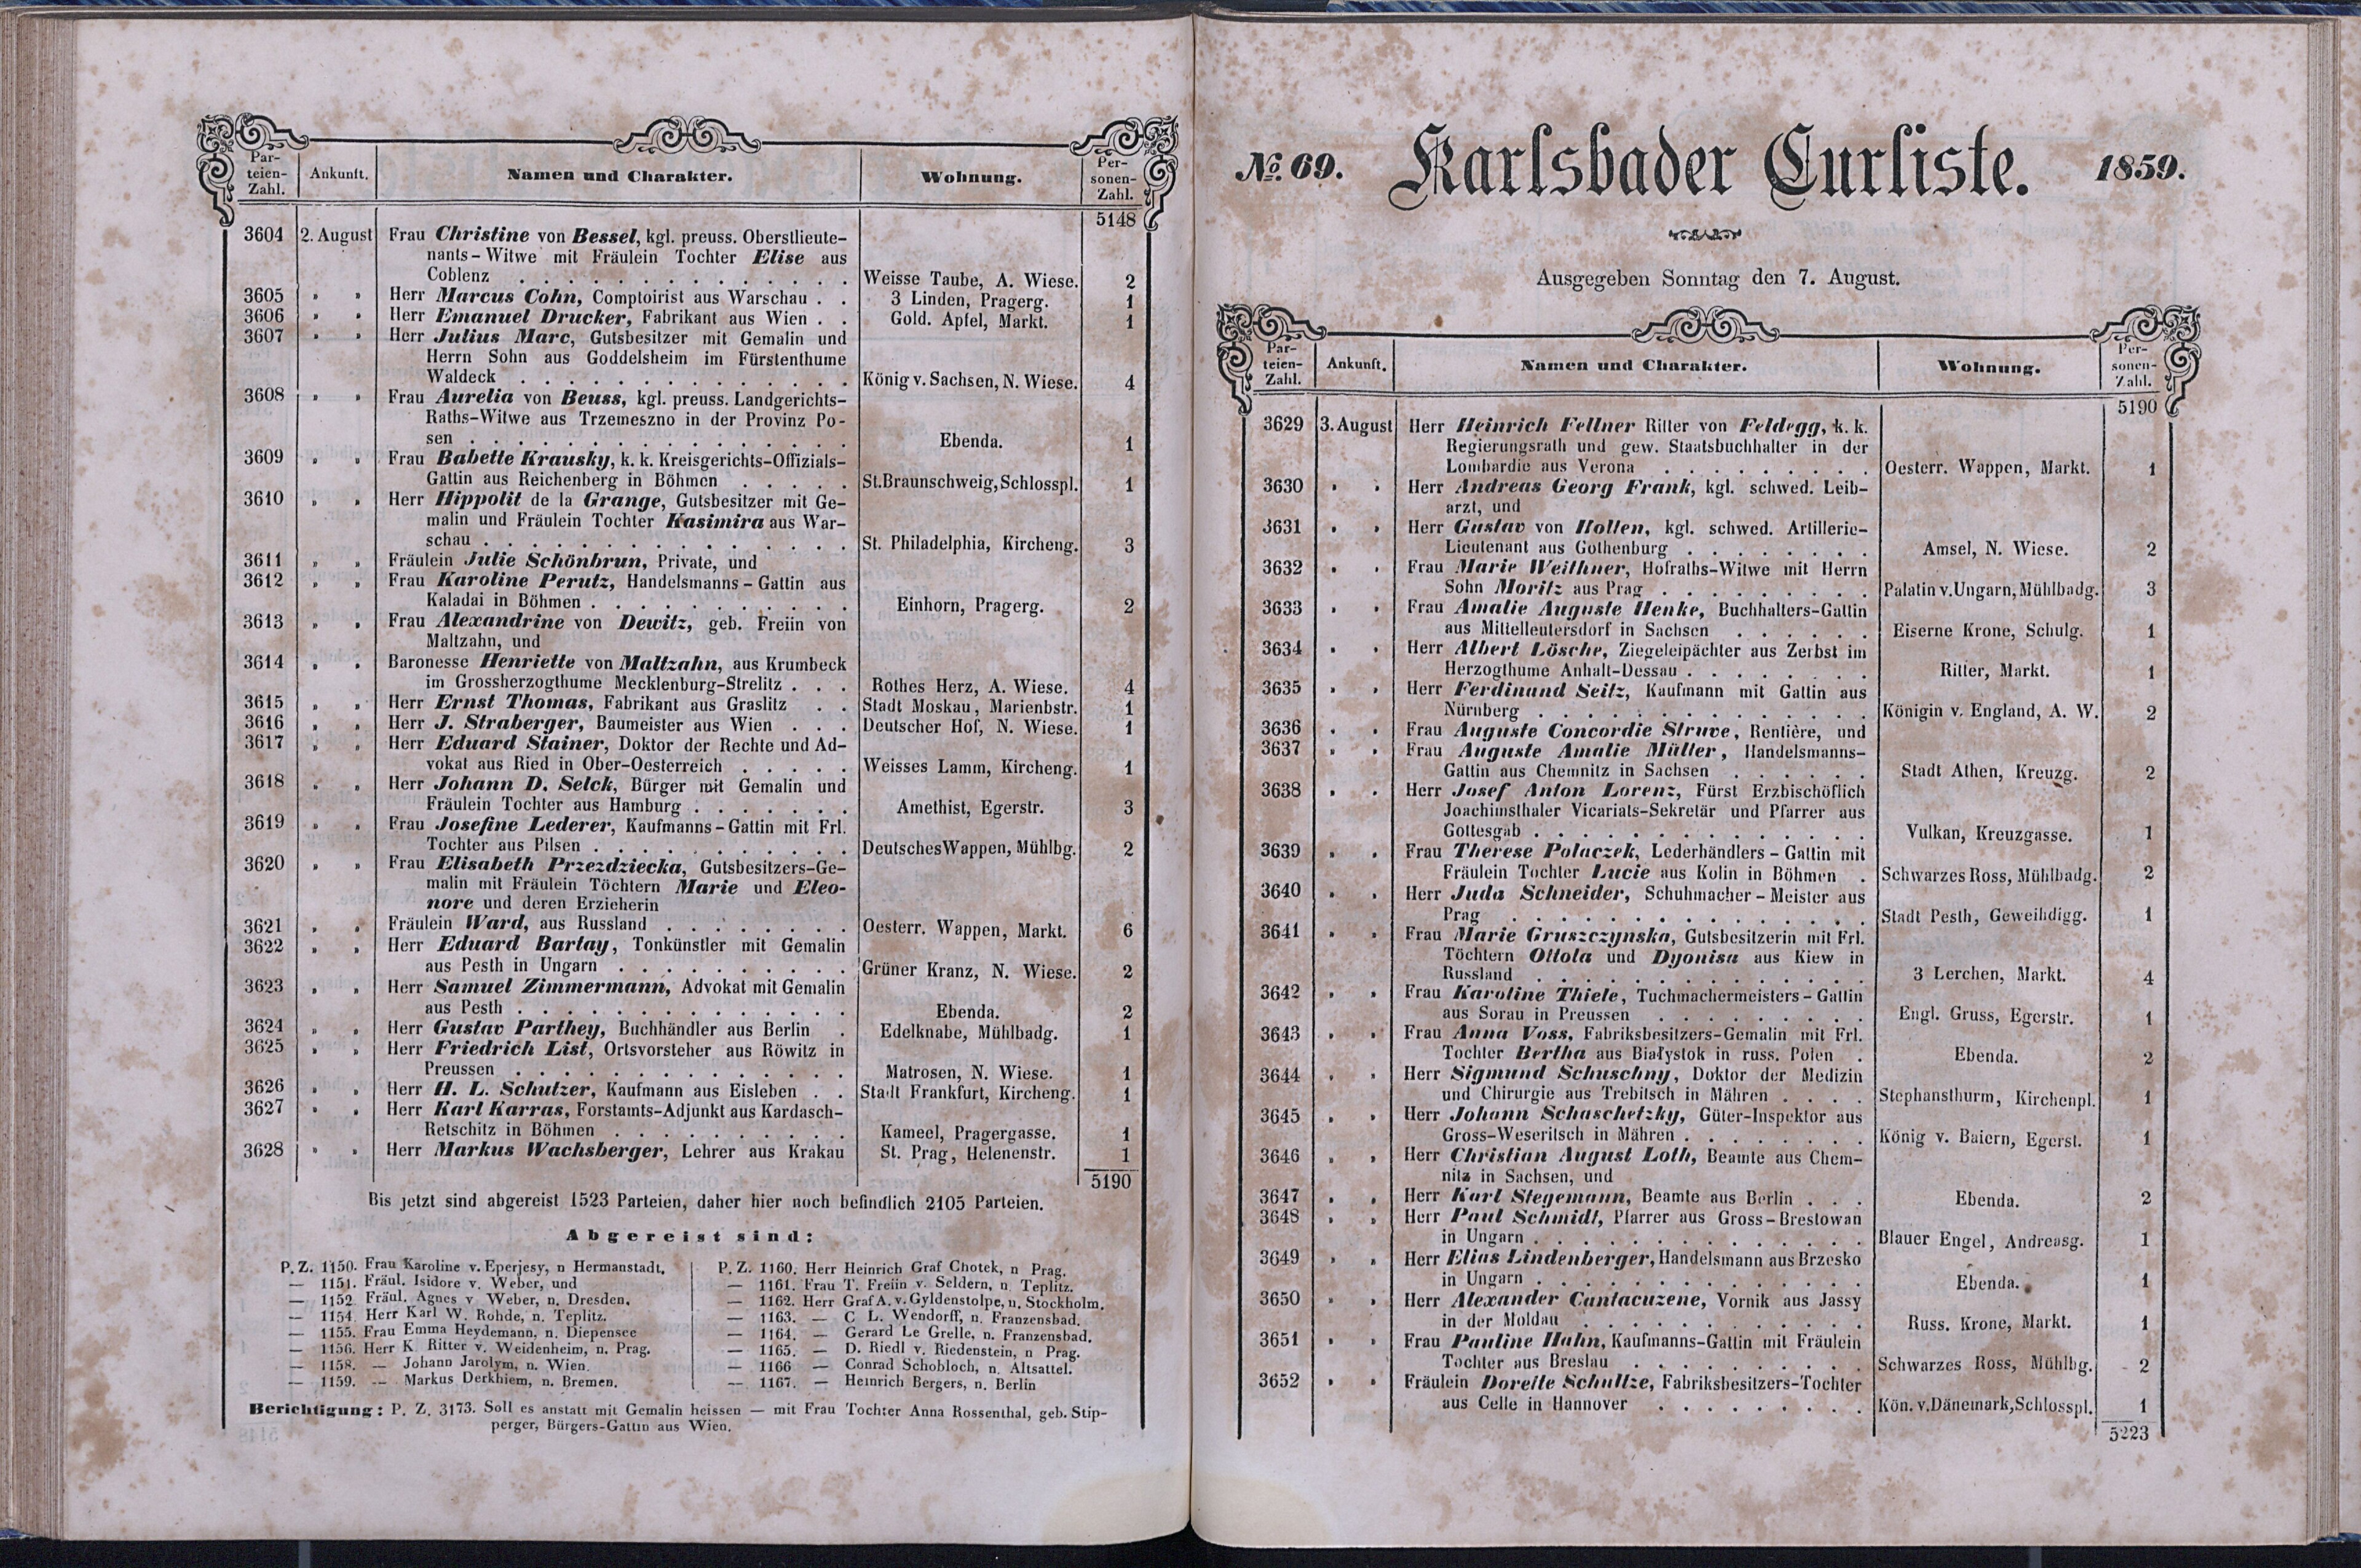 Par-
teien-
Zahl.
Ankunft.
Namen und Charakter.
Wohnung.
Per-
sonen-
Zahl.
5148
3604 2. August Frau Christine von Bessel, kgl. preuss. Oberstlieute-
nants-Witwe mit Fräulein Tochter Elise aus
Coblenz . . . . . . . . . . . . . . Weisse Taube, A. Wiese. 2
3605 „ „ Herr Marcus Cohn, Comptoirist aus Warschau . . 3 Linden, Pragerg. 1
3606 „ „ Herr Emanuel Drucker, Fabrikant aus Wien . . Gold. Apfel, Markt. 1
3607 „ „ Herr Julius Marc, Gutsbesitzer mit Gemalin und
Herrn Sohn aus Goddelsheim im Fürstenthume
Waldeck . . . . . . . . . . . . . . König v. Sachsen, N. Wiese. 4
3608 „ „ Frau Aurelia von Beuss, kgl. preuss. Landgerichts-
Raths-Witwe aus Trzemeszno in der Provinz Po-
sen . . . . . . . . . . . . . . . . Ebenda. 1
3609 „ „ Frau Babette Krausky, k. k. Kreisgerichts-Offizials-
Gattin aus Reichenberg in Böhmen . . . . . St. Braunschweig, Schlosspl. 1
3610 „ „ Herr Hippolit de la Grange, Gutsbesitzer mit Ge-
malin und Fräulein Tochter Kasimira aus War-
schau . . . . . . . . . . . . . . . St. Philadelphia, Kircheng. 3
3611 „ „ Fräulein Julie Schönbrun, Private, und
3612 „ „ Frau Karoline Perutz, Handelsmanns-Gattin aus
Kaladai in Böhmen . . . . . . . . . . . Einhorn, Pragerg. 2
3613 „ „ Frau Alexandrine von Dewitz, geb. Freiin von
Maltzahn, und
3614 „ „ Baronesse Henriette von Maltzahn, aus Krumbeck
im Grossherzogthume Mecklenburg-Strelitz . . . Rothes Herz, A. Wiese. 4
3615 „ „ Herr Ernst Thomas, Fabrikant aus Graslitz . . Stadt Moskau, Marienbstr. 1
3616 „ „ Herr J. Straberger, Baumeister aus Wien . . . Deutscher Hof, N. Wiese. 1
3617 „ „ Herr Eduard Stainer, Doktor der Rechte und Ad-
vokat aus Ried in Ober-Oesterreich . . . . . Weisses Lamm, Kircheng. 1
3618 „ „ Herr Johann D. Selck, Bürger mit Gemalin und
Fräulein Tochter aus Hamburg . . . . . . . Amethist, Egerstr. 3
3619 „ „ Frau Josefine Lederer, Kaufmanns-Gattin mit Frl.
Tochter aus Pilsen . . . . . . . . . . . Deutsches Wappen, Mühlbg. 2
3620 „ „ Frau Elisabeth Przezdziecka, Gutsbesitzers-Ge-
malin mit Fräulein Töchtern Marie und Eleo-
nore und deren Erzieherin
3621 „ „ Fräulein Ward, aus Russland . . . . . . . . Oesterr. Wappen, Markt. 6
3622 „ „ Herr Eduard Bartay, Tonkünstler mit Gemalin
aus Pesth in Ungarn . . . . . . . . . . Grüner Kranz, N. Wiese. 2
3623 „ „ Herr Samuel Zimmermann, Advokat mit Gemalin
aus Pesth . . . . . . . . . . . . . . Ebenda. 2
3624 „ „ Herr Gustav Parthey, Buchhändler aus Berlin . Edelknabe, Mühlbadg. 1
3625 „ „ Herr Friedrich List, Ortsvorsteher aus Röwitz in
Preussen . . . . . . . . . . . . . . Matrosen, N. Wiese. 1
3626 „ „ Herr H. L. Schutzer, Kaufmann aus Eisleben . . Stadt Frankfurt, Kircheng. 1
3627 „ „ Herr Karl Karras, Forstamts-Adjunkt aus Kardasch-
Retschitz in Böhmen . . . . . . . . . . Kameel, Pragergasse. 1
3628 „ „ Herr Markus Wachsberger, Lehrer aus Krakau St. Prag, Helenenstr. 1
5190
Bis jetzt sind abgereist 1523 Parteien, daher hier noch befindlich 2105 Parteien.
Abgereist sind:
P. Z. 1150. Frau Karoline v. Eperjesy, n Hermanstadt.
— 1151. Fräul. Isidore v. Weber, und
— 1152 Fräul. Agnes v Weber, n. Dresden.
— 1154. Herr Karl W. Rohde, n. Teplitz.
— 1155. Frau Emma Heydemann, n. Diepensee
— 1156. Herr K Ritter v. Weidenheim, n. Prag.
— 1158. — Johann Jarolym, n. Wien.
— 1159. — Markus Derkhiem, n. Bremen.
P. Z. 1160. Herr Heinrich Graf Chotek, n Prag.
— 1161. Frau T. Freiin v. Seldern, n. Teplitz.
— 1162. Herr Graf A. v. Gyldenstolpe, n. Stockholm.
— 1163. — C L. Wendorff, n. Franzensbad.
— 1164. — Gerard Le Grelle, n. Franzensbad.
— 1165. — D. Riedl v. Riedenstein, n Prag.
— 1166 — Conrad Schobloch, n. Altsattel.
— 1167. — Heinrich Bergers, n. Berlin
Berichtigung: P. Z. 3173. Soll es anstatt mit Gemalin heissen — mit Frau Tochter Anna Rossenthal, geb. Stip-
perger, Bürgers-Gattin aus Wien.
No. 69. Karlsbader Curliste. 1859.
Ausgegeben Sonntag den 7. August.
Par-
teien-
Zahl.
Ankunft.
Namen und Charakter.
Wohnung.
Per-
sonen-
Zahl.
5190
3629 3. August Herr Heinrich Fellner Ritter von Feldegg, k. k.
Regierungsrath und gew. Staatsbuchhalter in der
Lombardie aus Verona . . . . . . . . . Oesterr. Wappen, Markt. 1
3630 „ „ Herr Andreas Georg Frank, kgl. schwed. Leib-
arzt, und
3631 „ „ Herr Gustav von Holten, kgl. schwed. Artillerie-
Lieutenant aus Gothenburg . . . . . . . . Amsel, N. Wiese. 2
3632 „ „ Frau Marie Weithner, Hofraths-Witwe mit Herrn
Sohn Moritz aus Prag . . . . . . . . . Palatin v. Ungarn, Mühlbadg. 3
3633 „ „ Frau Amalie Auguste Henke, Buchhalters-Gattin
aus Mittelleutersdorf in Sachsen . . . . . . Eiserne Krone, Schulg. 1
3634 „ „ Herr Albert Lösche, Ziegeleipächter aus Zerbst im
Herzogthume Anhalt-Dessau . . . . . . . . Ritter, Markt. 1
3635 „ „ Herr Ferdinand Seitz, Kaufmann mit Gattin aus
Nürnberg . . . . . . . . . . . . . . Königin v. England, A. W. 2
3636 „ „ Frau Auguste Concordie Struve, Rentière, und
3637 „ „ Frau Auguste Amalie Müller, Handelsmanns-
Gattin aus Chemnitz in Sachsen . . . . . . Stadt Athen, Kreuzg. 2
3638 „ „ Herr Josef Anton Lorenz, Fürst Erzbischöflich
Joachimsthaler Vicariats-Sekretär und Pfarrer aus
Gottesgab . . . . . . . . . . . . . . Vulkan, Kreuzgasse. 1
3639 „ „ Frau Therese Polaczek, Lederhändlers-Gattin mit
Fräulein Tochter Lucie aus Kolin in Böhmen . Schwarzes Ross, Mühlbadg. 2
3640 „ „ Herr Juda Schneider, Schuhmacher-Meister aus
Prag . . . . . . . . . . . . . . . Stadt Pesth, Geweihdigg. 1
3641 „ „ Frau Marie Gruszczynska, Gutsbesitzerin mit Frl.
Töchtern Ottola und Dyonisa aus Kiew in
Russland . . . . . . . . . . . . . . 3 Lerchen, Markt. 4
3642 „ „ Frau Karoline Thiele, Tuchmachermeisters-Gattin
aus Sorau in Preussen . . . . . . . . . Engl. Gruss, Egerstr. 1
3643 „ „ Frau Anna Voss, Fabriksbesitzers-Gemalin mit Frl.
Tochter Bertha aus Białystok in russ. Polen . Ebenda. 2
3644 „ „ Herr Sigmund Schuschny, Doktor der Medizin
und Chirurgie aus Trebitsch in Mähren . . . . Stephansthurm, Kirchenpl. 1
3645 „ „ Herr Johann Schaschetzky, Güter-Inspektor aus
Gross-Weseritsch in Mähren . . . . . . . . König v. Baiern, Egerst. 1
3646 „ „ Herr Christian August Loth, Beamte aus Chem-
nitz in Sachsen, und
3647 „ „ Herr Karl Stegemann, Beamte aus Berlin . . . Ebenda. 2
3648 „ „ Herr Paul Schmidt, Pfarrer aus Gross-Brestowan
in Ungarn . . . . . . . . . . . . . . Blauer Engel, Andreasg. 1
3649 „ „ Herr Elias Lindenberger, Handelsmann aus Brzesko
in Ungarn . . . . . . . . . . . . . . Ebenda. 1
3650 „ „ Herr Alexander Cantacuzene, Vornik aus Jassy
in der Moldau . . . . . . . . . . . . Russ. Krone, Markt. 1
3651 „ „ Frau Pauline Hahn, Kaufmanns-Gattin mit Fräulein
Tochter aus Breslau . . . . . . . . . . Schwarzes Ross, Mühlbg. 2
3652 „ „ Fräulein Dorette Schultze, Fabriksbesitzers-Tochter
aus Celle in Hannover . . . . . . . . . Kön. v. Dänemark, Schlosspl. 1
5223